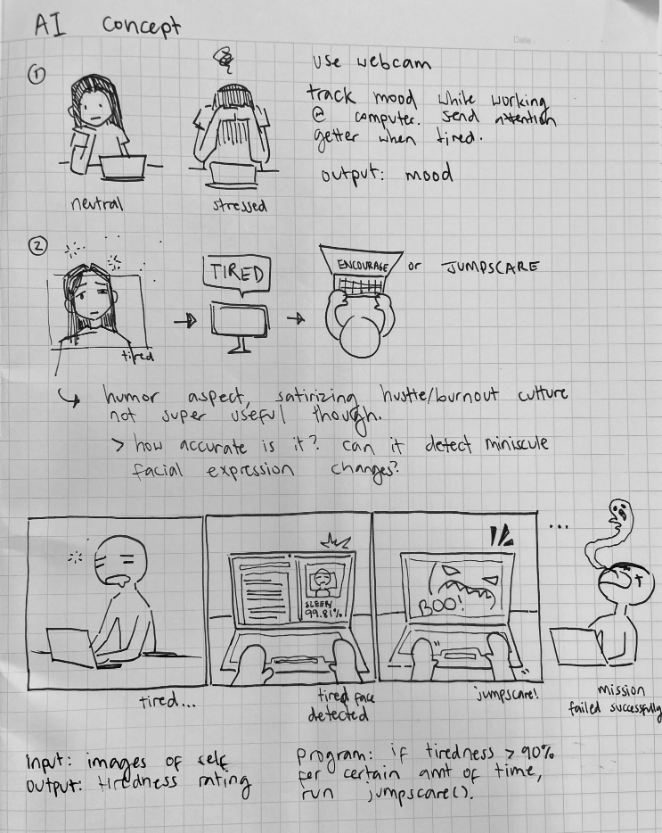 AI concept
Date
①
use webcam
track mood while working
@ computer. send attention
getter when tired.
output: mood
neutral
stressed
②
TIRED
ENCOURAGE
or JUMPSCARE
tired
humor aspect, satirizing hustle/burnout culture
not super useful though.
> how accurate is it? can it detect miniscule
facial expression changes?
SLEEPY
99.81%
BOO!
...
tired...
tired face
detected
jumpscare!
mission
failed successfully
Input: images of self
Output: tiredness rating
Program: if tiredness > 90%
for certain amt of time,
run jumpscare().